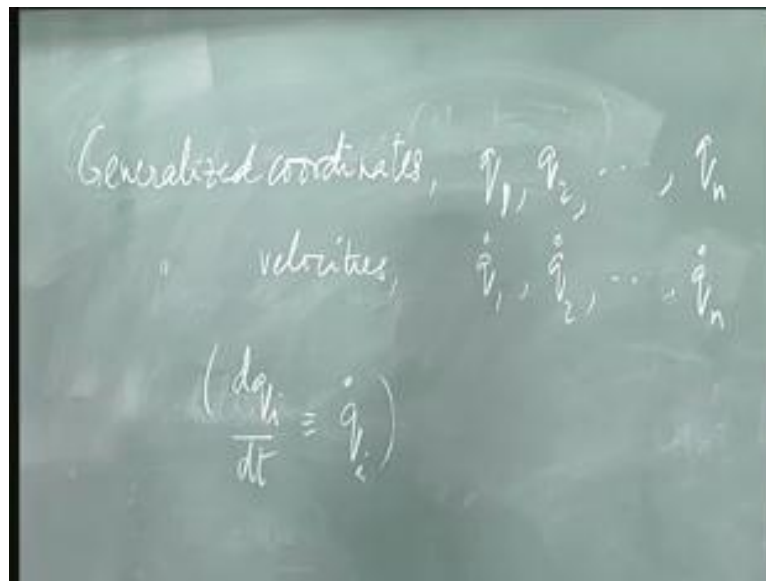 Generalized coordinates, q₁, q₂, ..., qₙ
" velocities, q̇₁, q̇₂, ..., q̇ₙ
(dqᵢ/dt ≡ q̇ᵢ)